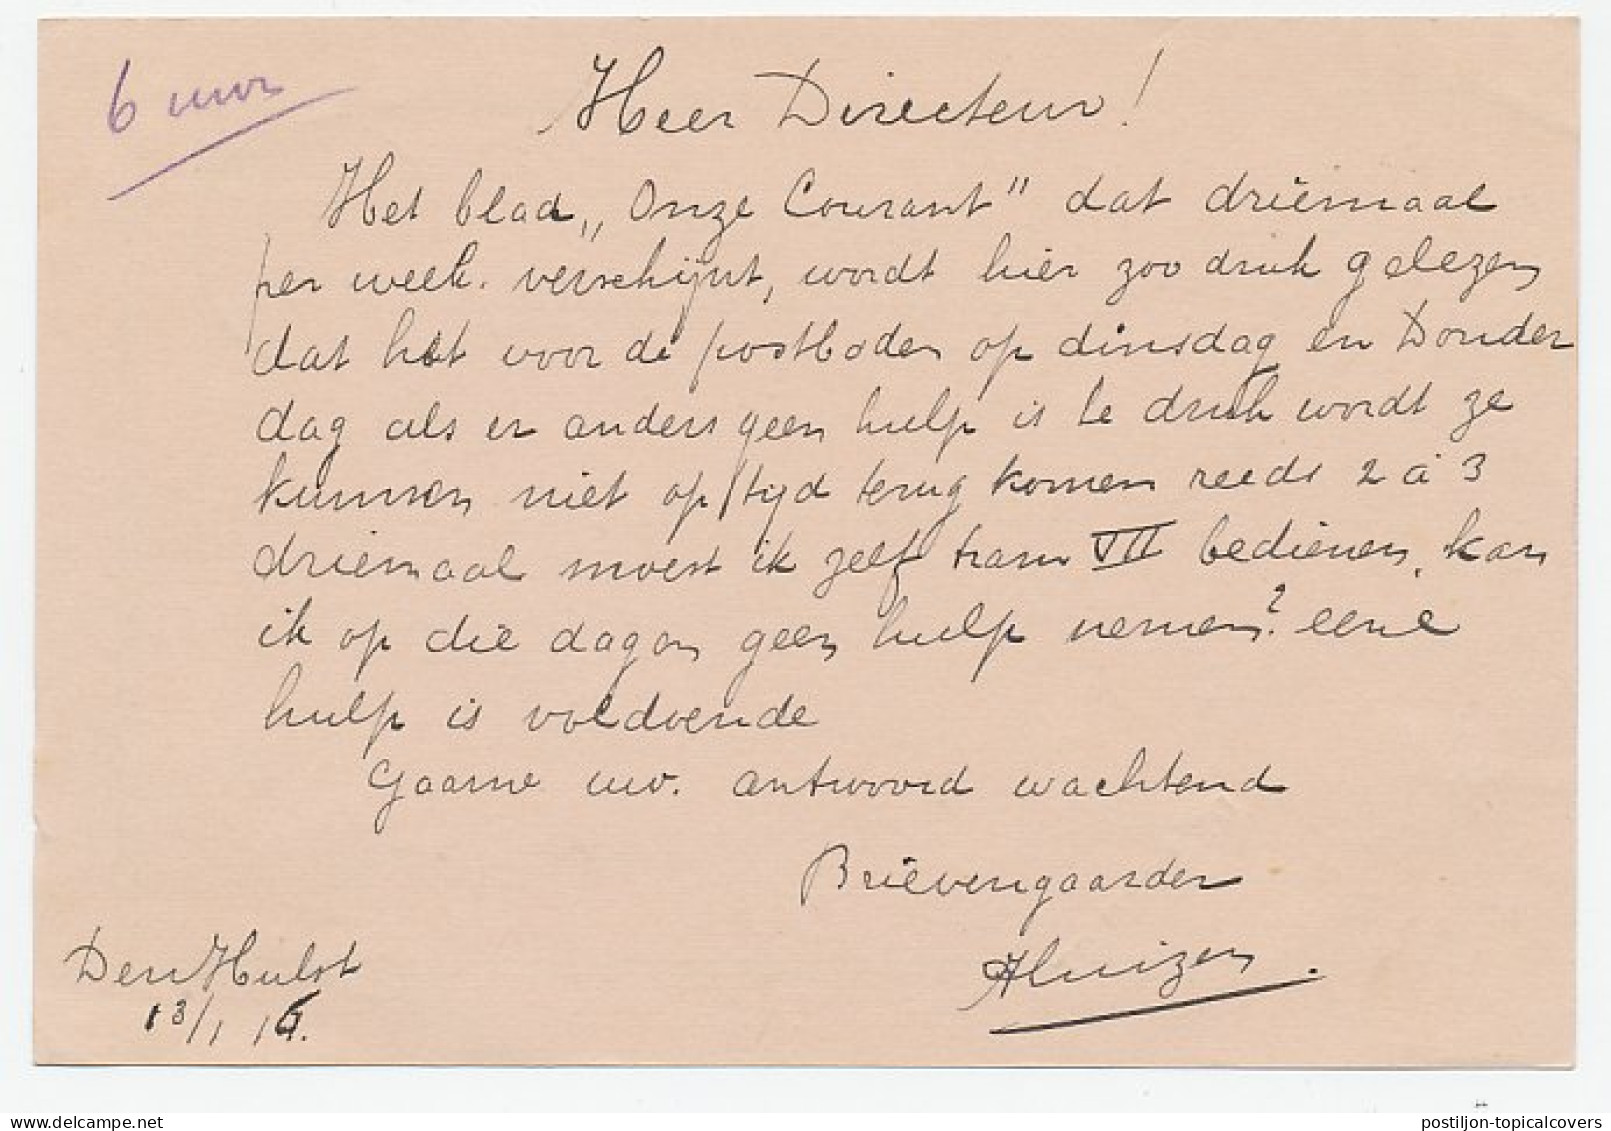 6 uur
Heer Directeur!
Het blad „Onze Courant" dat driemaal
per week. verschijnt, wordt hier zoo druk gelezen
dat het voor de postboden op dinsdag en Donder
dag als er anders geen hulp is te druk wordt ze
kunnen niet op tijd terug komen reeds 2 à 3
driemaal moest ik zelf tram VII bedienen, kan
ik op die dagen geen hulp nemen? eene
hulp is voldoende
Gaarne uw. antwoord wachtend
Brievengaarder
AHuizen.
Den Hulst
13/1 16.
postiljon-topicalcovers